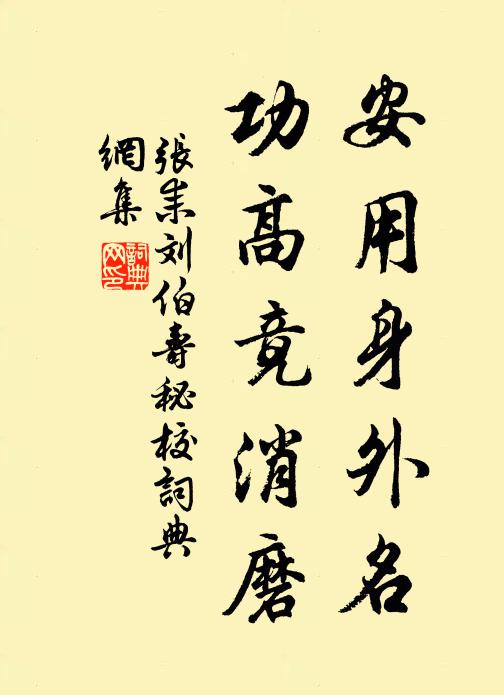 安用身外名
功高竟消磨
張耒刘伯壽秘校詞典
網集
詞典
网印